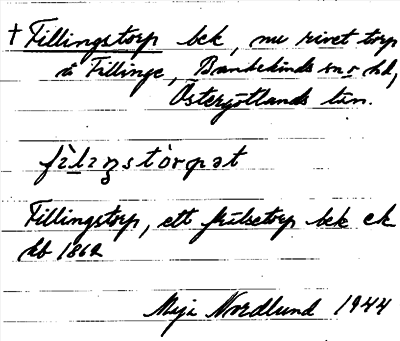 † Fillingstorp bck, nu rivet torp
å Fillinge, Bankekinds sn o hd,
Östergötlands län.
fìliŋstòrpət
Fillingstorp, ett frälsetorp bck ek
kb 1862
Maja Nordlund 1944